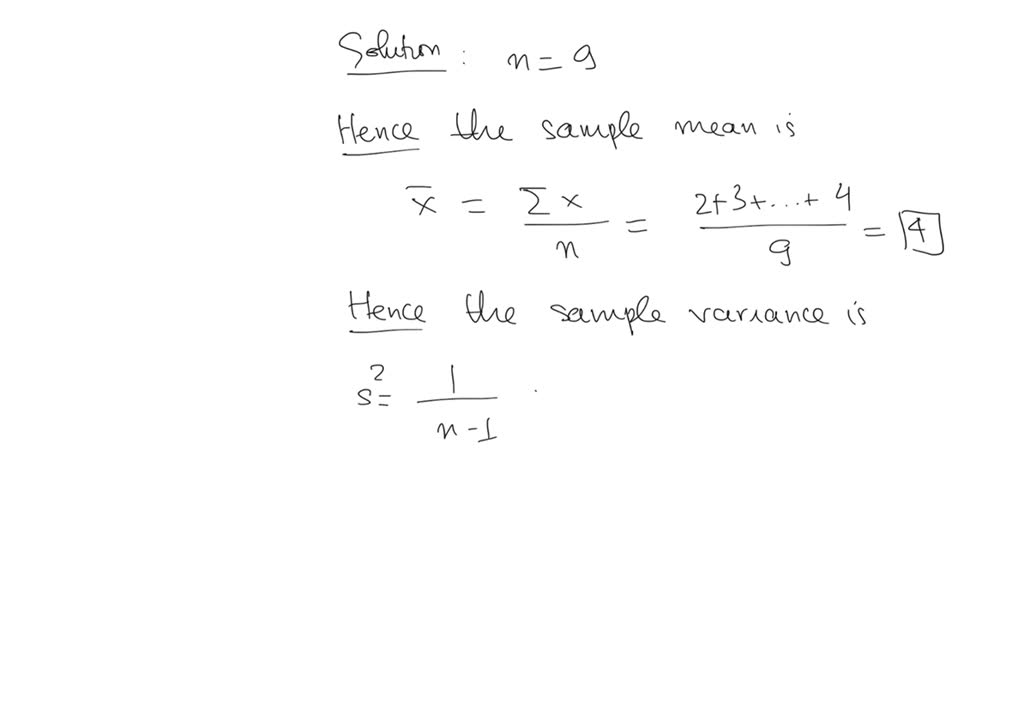 Solution : n = 9
Hence the sample mean is
x̄ = Σx / n = 2+3+...+4 / 9 = 4
Hence the sample variance is
s² = 1 / n-1